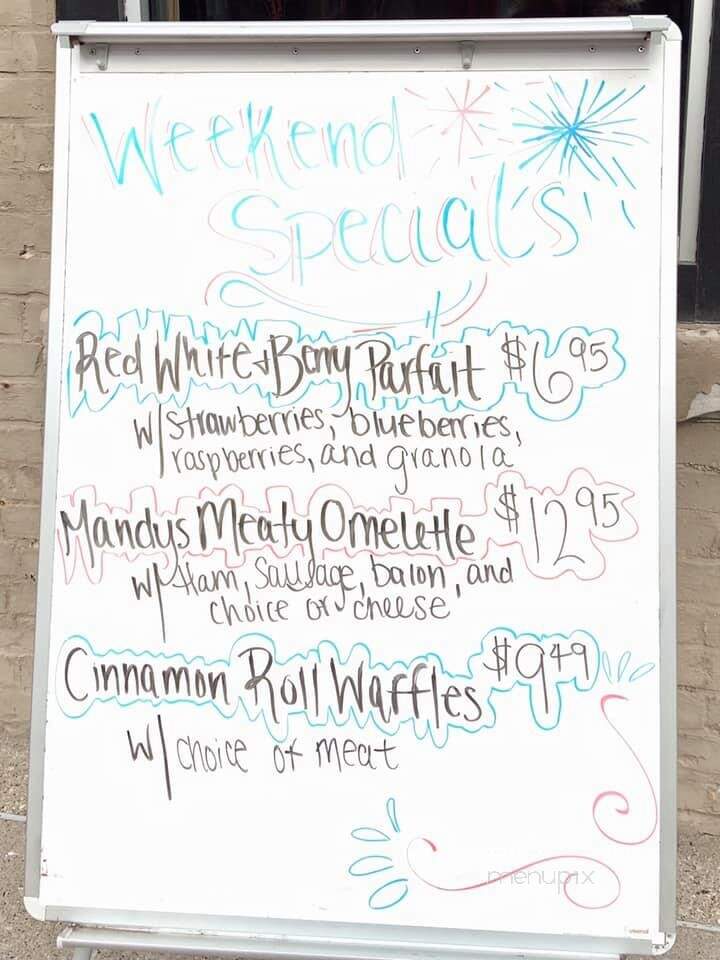 Weekend
Specials
Red White + Berry Parfait $6.95
w/ strawberries, blueberries,
raspberries, and granola
Mandys Meaty Omelette $12.95
w/ Ham, Sausage, bacon, and
choice of cheese
Cinnamon Roll Waffles $9.49
w/ choice of meat
menupix